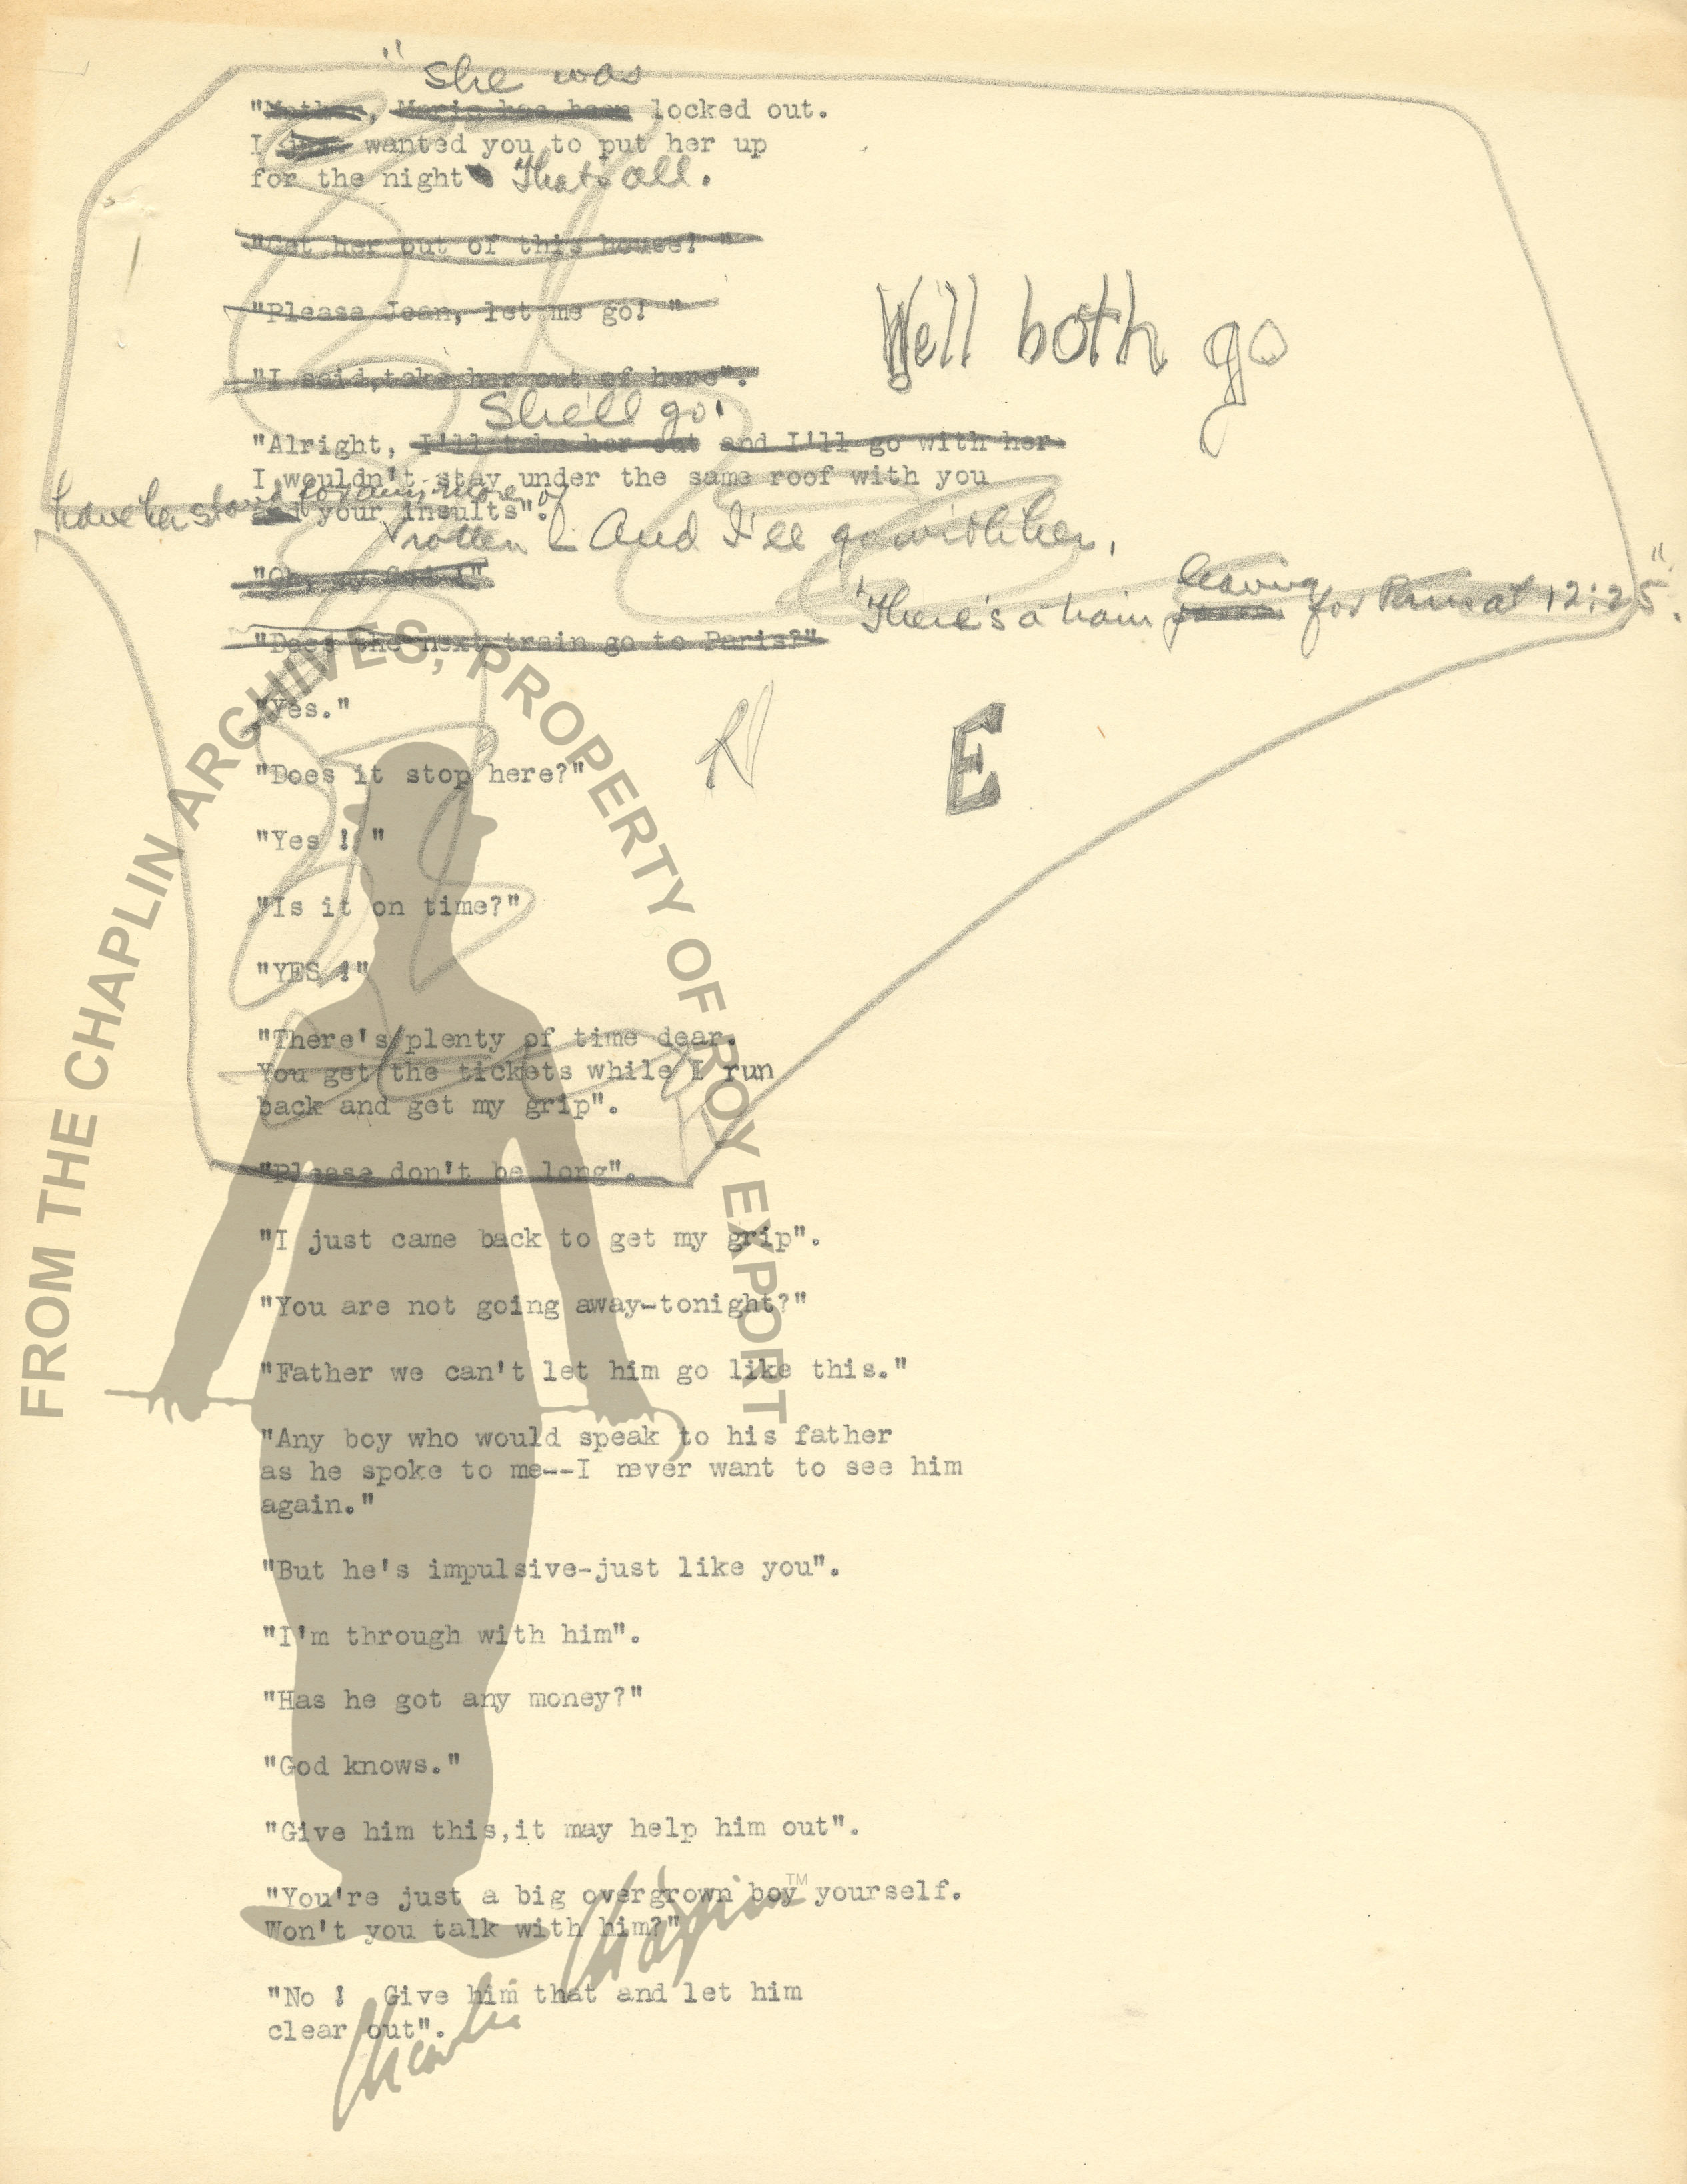 " she was
"Mother, Marie has been locked out.
I just wanted you to put her up
for the night That's all.
"Get her out of this house! "
"Please Jean, let me go! "
We'll both go
"I said,take her out of here".
She'll go.
"Alright, I'll take her out and I'll go with her
I wouldn't stay under the same roof with you
have her stand for any more of
and your insults".
rotten And I'll go with her.
"Oh, my God !"
leaving
"There's a train for Paris at 12:25".
"Does the next train go to Paris?"
"Yes."
E
"Does it stop here?"
"Yes ! "
"Is it on time?"
"YES !"
"There's plenty of time dear.
You get the tickets while I run
back and get my grip".
"Please don't be long".
"I just came back to get my grip".
"You are not going away-tonight?"
"Father we can't let him go like this."
"Any boy who would speak to his father
as he spoke to me--I never want to see him
again."
"But he's impulsive-just like you".
"I'm through with him".
"Has he got any money?"
"God knows."
"Give him this,it may help him out".
"You're just a big overgrown boy yourself.
Won't you talk with him?"
"No ! Give him that and let him
clear out".
FROM THE CHAPLIN ARCHIVES, PROPERTY OF ROY EXPORT
Charlie Chaplin TM